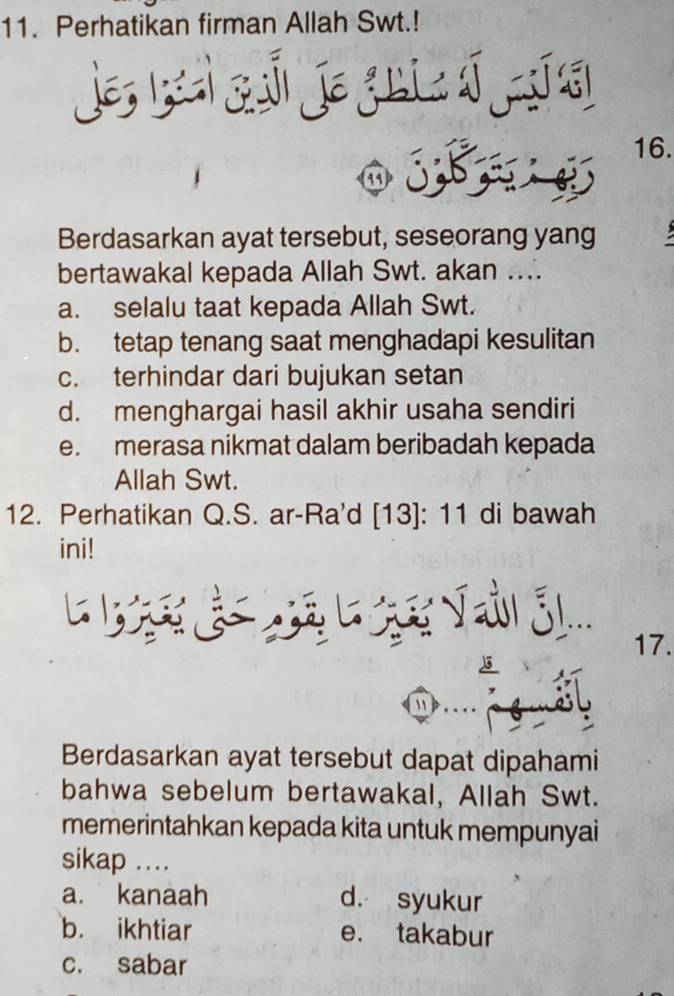 11. Perhatikan firman Allah Swt.!
اِنَّهٗ لَيْسَ لَهٗ سُلْطٰنٌ عَلَى الَّذِيْنَ اٰمَنُوْا وَعَلٰى
رَبِّهِمْ يَتَوَكَّلُوْنَ ﴿٩٩﴾
Berdasarkan ayat tersebut, seseorang yang
bertawakal kepada Allah Swt. akan ....
a. selalu taat kepada Allah Swt.
b. tetap tenang saat menghadapi kesulitan
c. terhindar dari bujukan setan
d. menghargai hasil akhir usaha sendiri
e. merasa nikmat dalam beribadah kepada
Allah Swt.
12. Perhatikan Q.S. ar-Ra'd [13]: 11 di bawah
ini!
...اِنَّ اللّٰهَ لَا يُغَيِّرُ مَا بِقَوْمٍ حَتّٰى يُغَيِّرُوْا مَا
بِاَنْفُسِهِمْۗ .... ﴿١١﴾
Berdasarkan ayat tersebut dapat dipahami
bahwa sebelum bertawakal, Allah Swt.
memerintahkan kepada kita untuk mempunyai
sikap ....
a. kanaah
b. ikhtiar
c. sabar
d. syukur
e. takabur
16.
17.